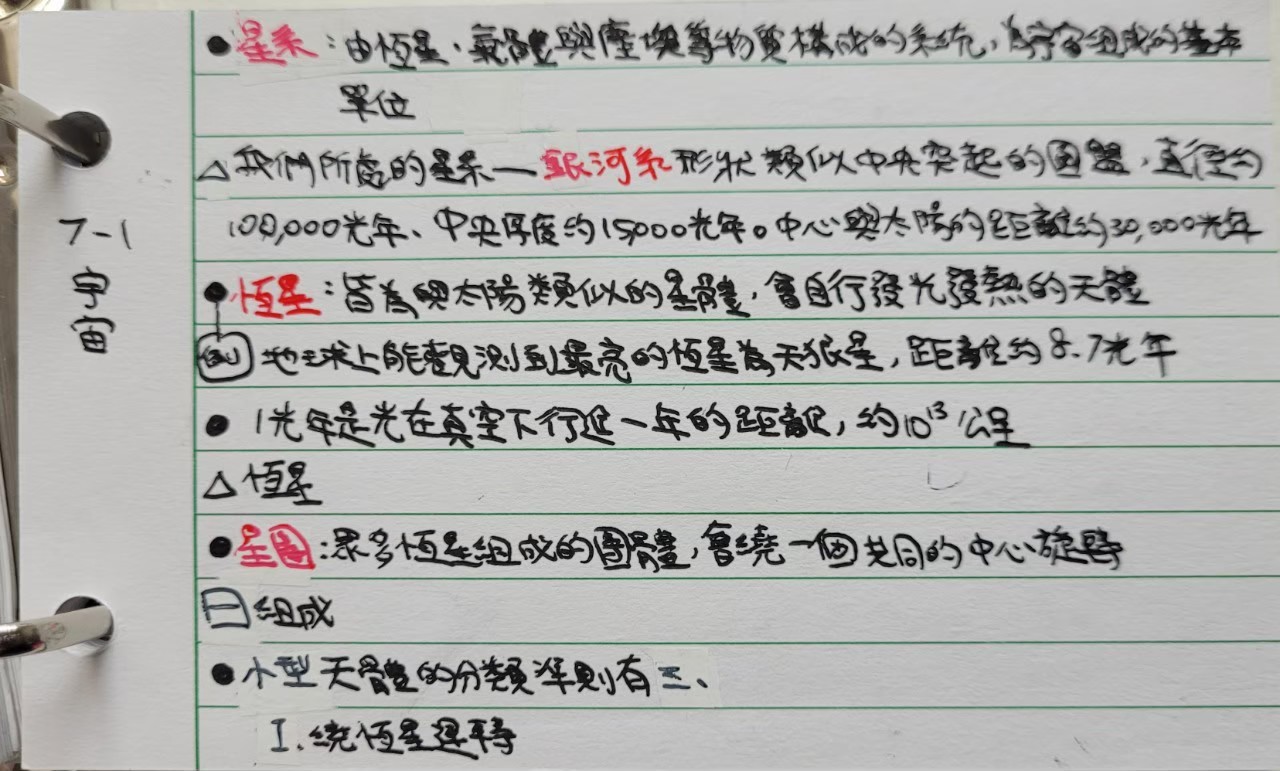 7-1
宇
宙
● 星系：由恆星、氣體與塵埃等物質構成的系統，為宇宙組成的基本
單位
△ 我們所處的星系—銀河系形狀類似中央突起的圓盤，直徑約
100,000光年、中央厚度約15,000光年。中心與太陽的距離約30,000光年
● 恆星：皆為與太陽類似的星體，會自行發光發熱的天體
例 地球上能觀測到最亮的恆星為天狼星，距離約8.7光年
● 1光年是光在真空下行進一年的距離，約10¹³公里
△ 恆星
● 星團：眾多恆星組成的團體，會繞一個共同的中心旋轉
組成
● 小型天體的分類準則有三、
I. 繞恆星運轉